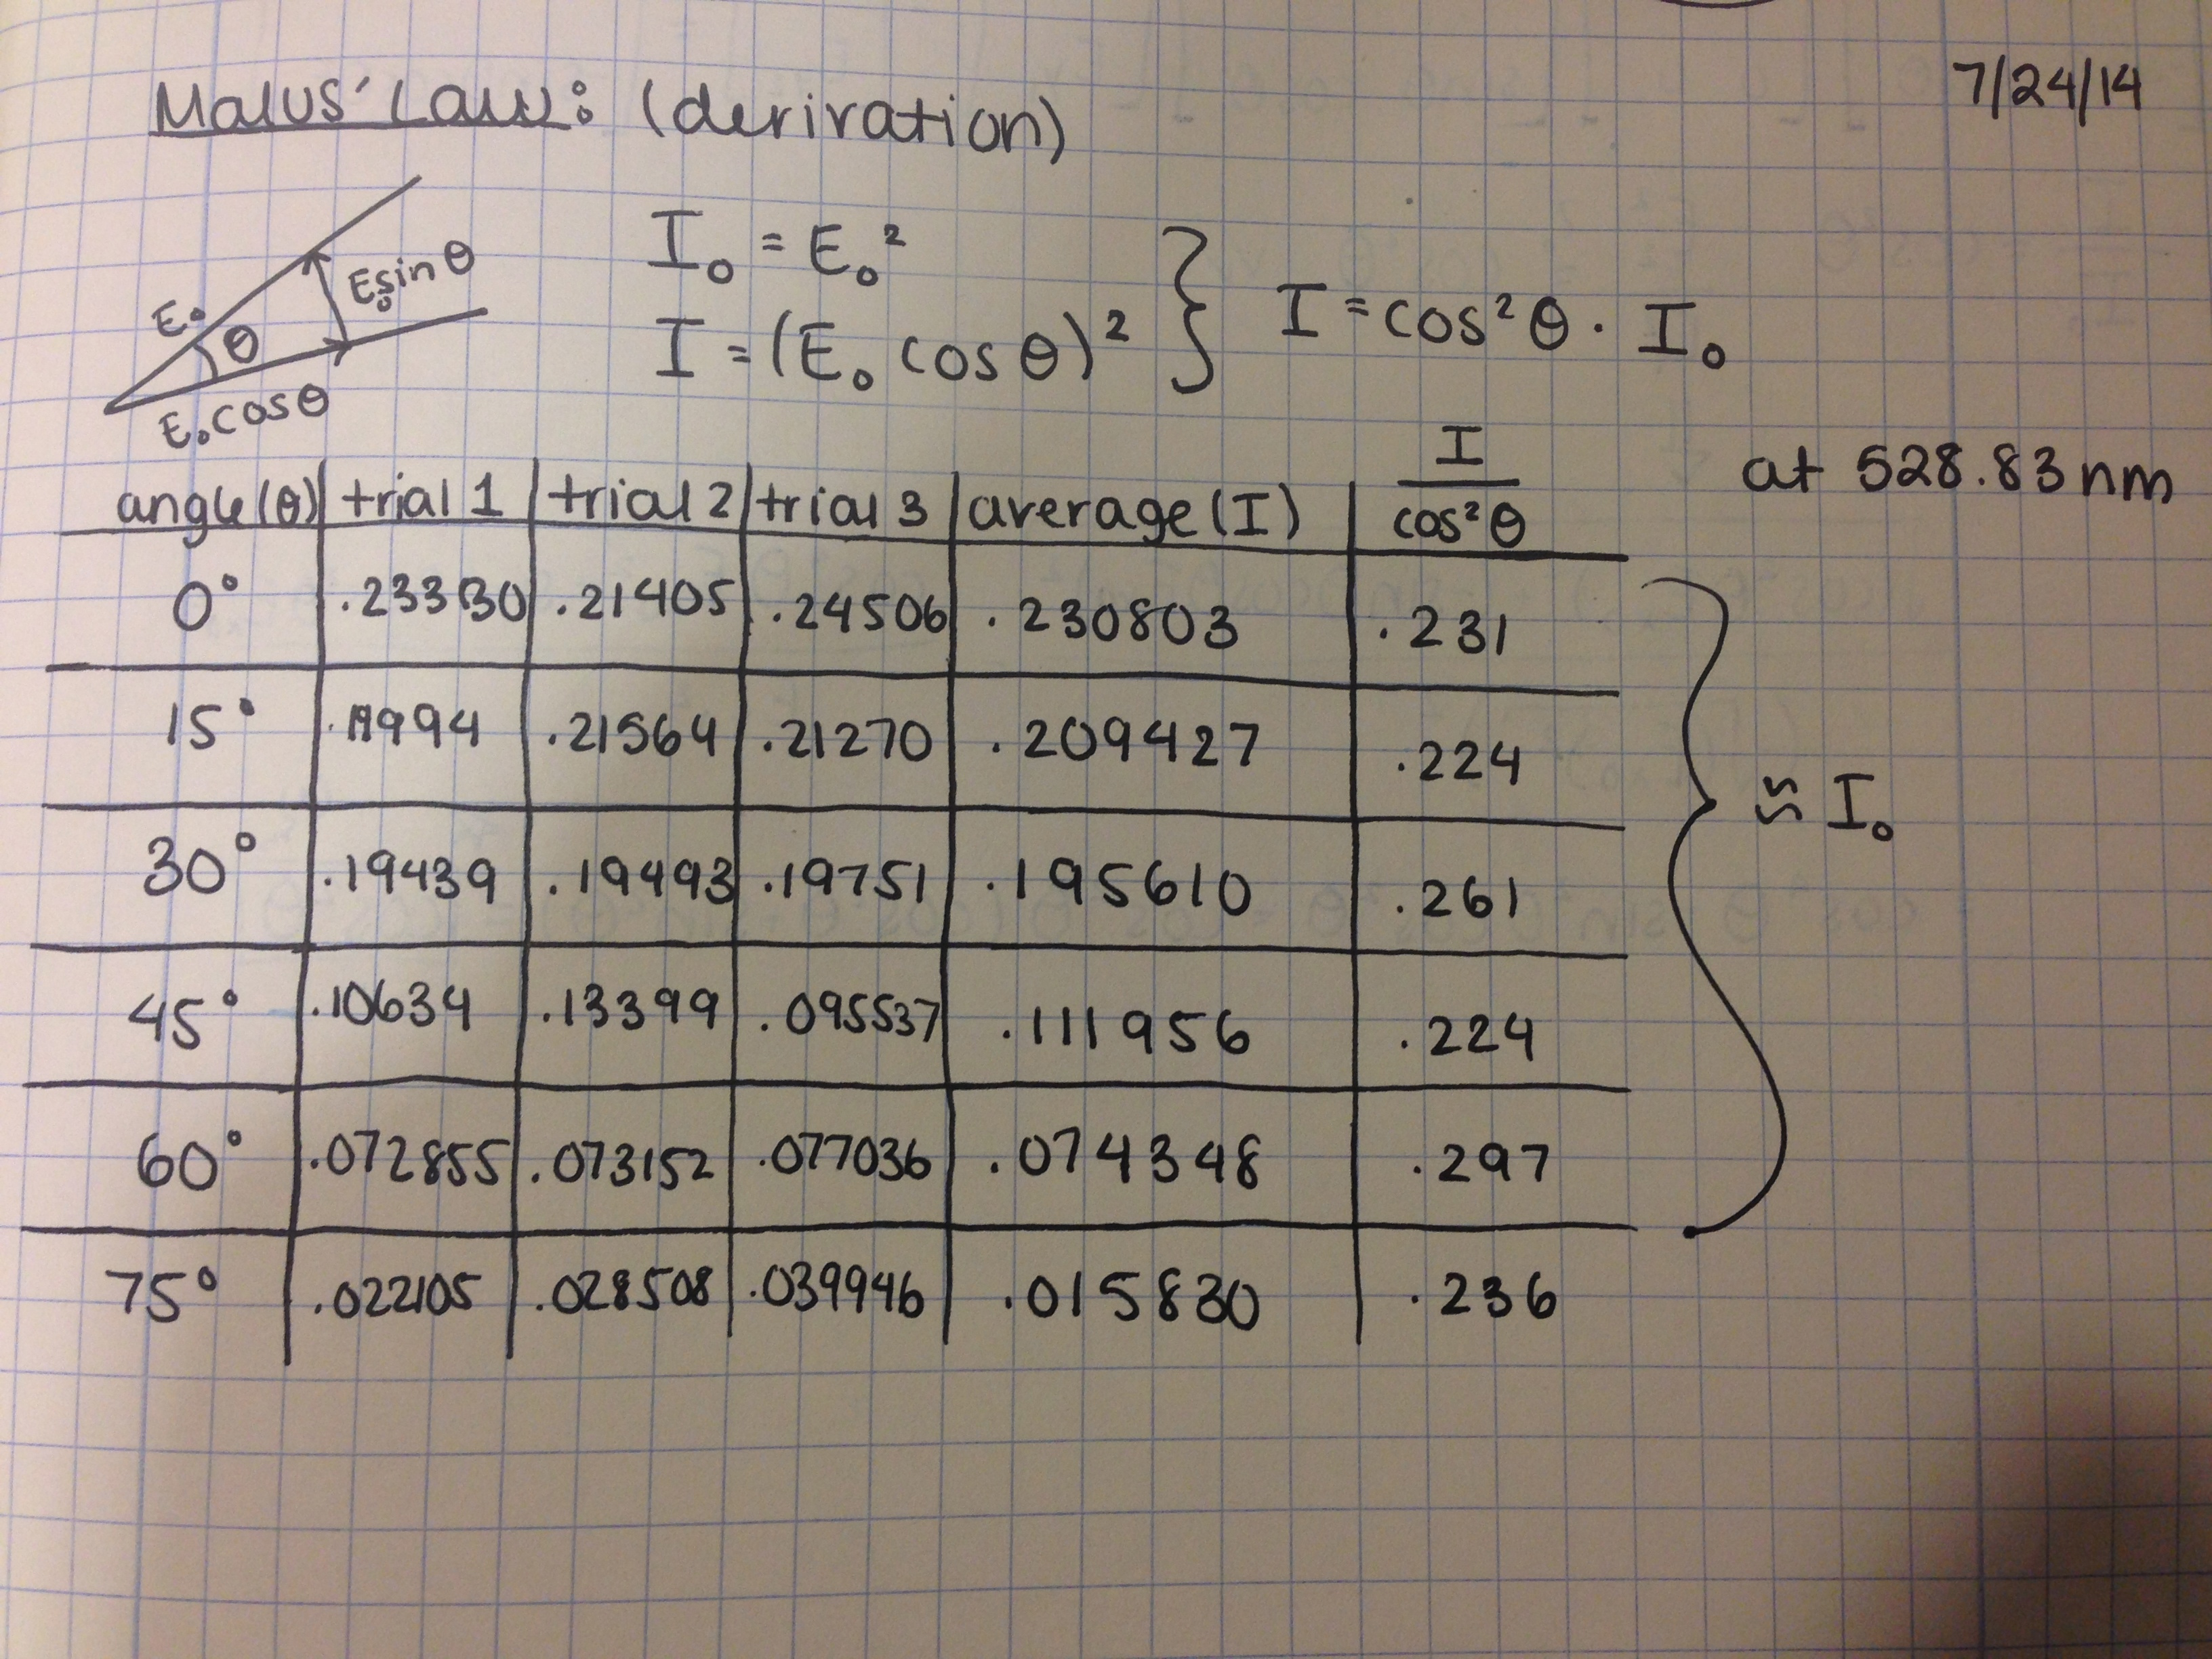 Malus' Law: (derivation)
7/24/14
E₀
θ
E₀ sin θ
E₀ cos θ
I₀ = E₀²
I = (E₀ cos θ)²
I = cos²θ · I₀
at 528.83 nm
angle (θ) trial 1 trial 2 trial 3 average (I) I/cos²θ
0° .23330 .21405 .24506 .230803 .231
15° .19994 .21564 .21270 .209427 .224
30° .19439 .19493 .19751 .195610 .261
45° .10634 .13399 .095537 .111956 .224
60° .072855 .073152 .077036 .074348 .297
75° .022105 .028508 .039946 .015830 .236
≈ I₀